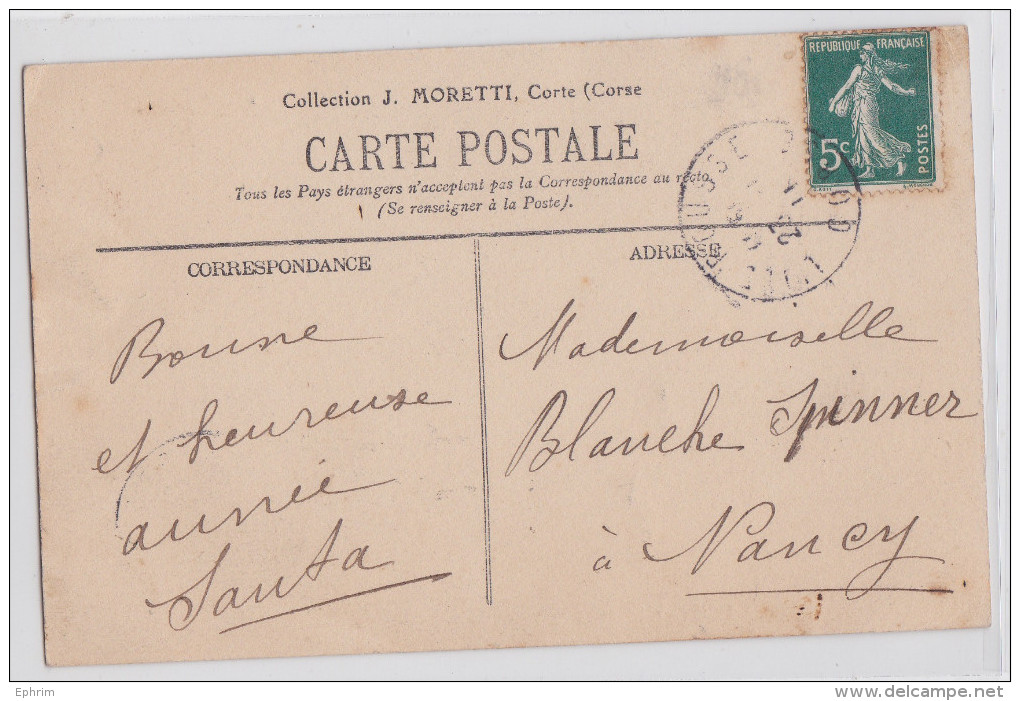 Collection J. MORETTI, Corte (Corse
CARTE POSTALE
Tous les Pays étrangers n'acceptent pas la Correspondance au recto
(Se renseigner à la Poste).
REPUBLIQUE FRANÇAISE
5c
POSTES
CORRESPONDANCE
Bonne
et heureuse
année
Santa
ADRESSE
Mademoiselle
Blanche Spinner
à Nancy
Ephrim
www.delcampe.net